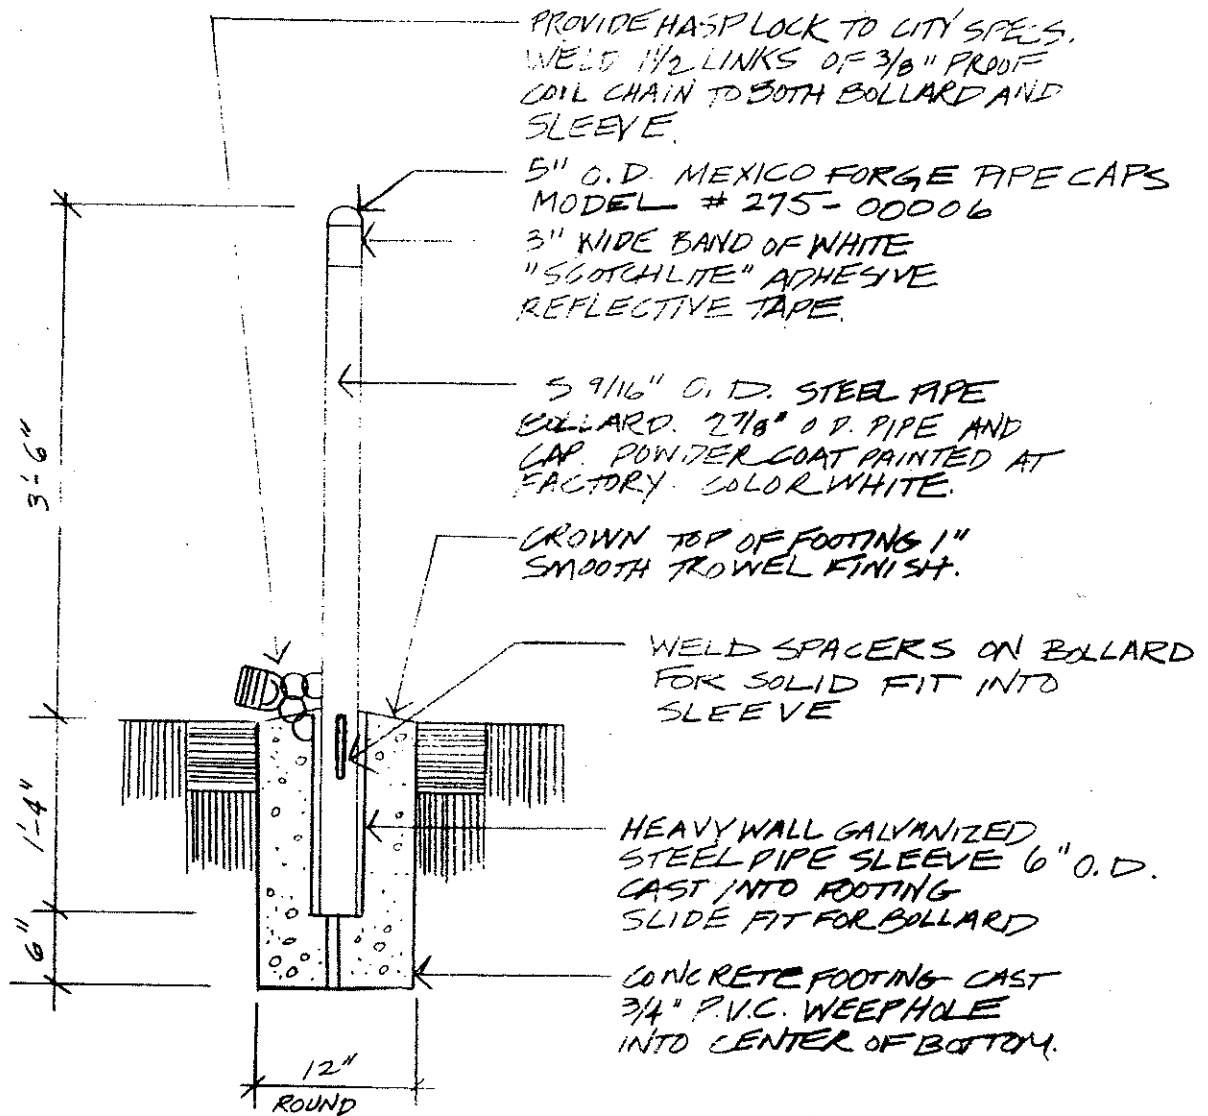 PROVIDE HASP LOCK TO CITY SPECS.
WELD 1 1/2 LINKS OF 3/8" PROOF
COIL CHAIN TO BOTH BOLLARD AND
SLEEVE.
5" O.D. MEXICO FORGE PIPE CAPS
MODEL # 275-00006
3" WIDE BAND OF WHITE
"SCOTCHLITE" ADHESIVE
REFLECTIVE TAPE.
5 9/16" O.D. STEEL PIPE
BOLLARD. 2 7/8" O.D. PIPE AND
CAP. POWDER COAT PAINTED AT
FACTORY. COLOR WHITE.
CROWN TOP OF FOOTING 1"
SMOOTH TROWEL FINISH.
WELD SPACERS ON BOLLARD
FOR SOLID FIT INTO
SLEEVE
HEAVY WALL GALVANIZED
STEEL PIPE SLEEVE 6" O.D.
CAST INTO FOOTING
SLIDE FIT FOR BOLLARD
CONCRETE FOOTING CAST
3/4" P.V.C. WEEPHOLE
INTO CENTER OF BOTTOM.
3'-6"
1'-4"
6"
12"
ROUND